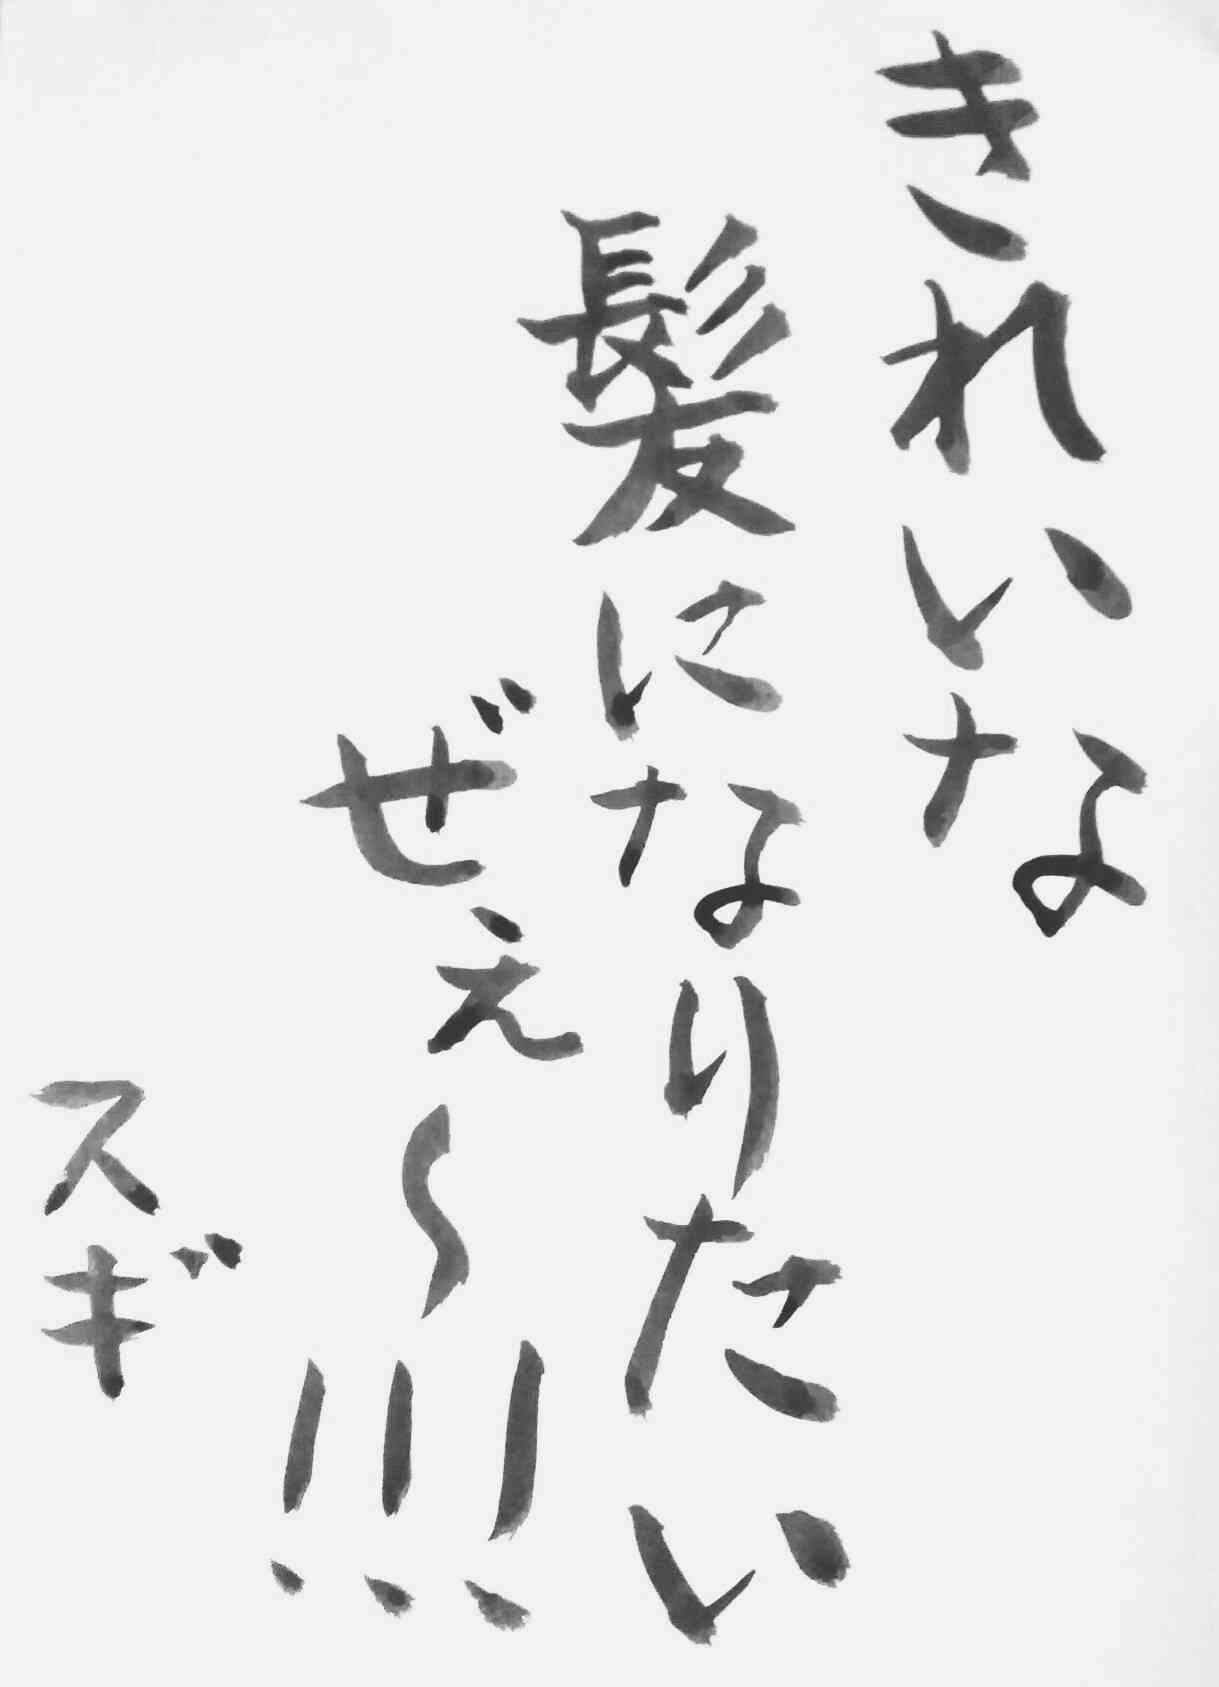 きれいな
髪になりたい
ぜえ～!!!
スギ